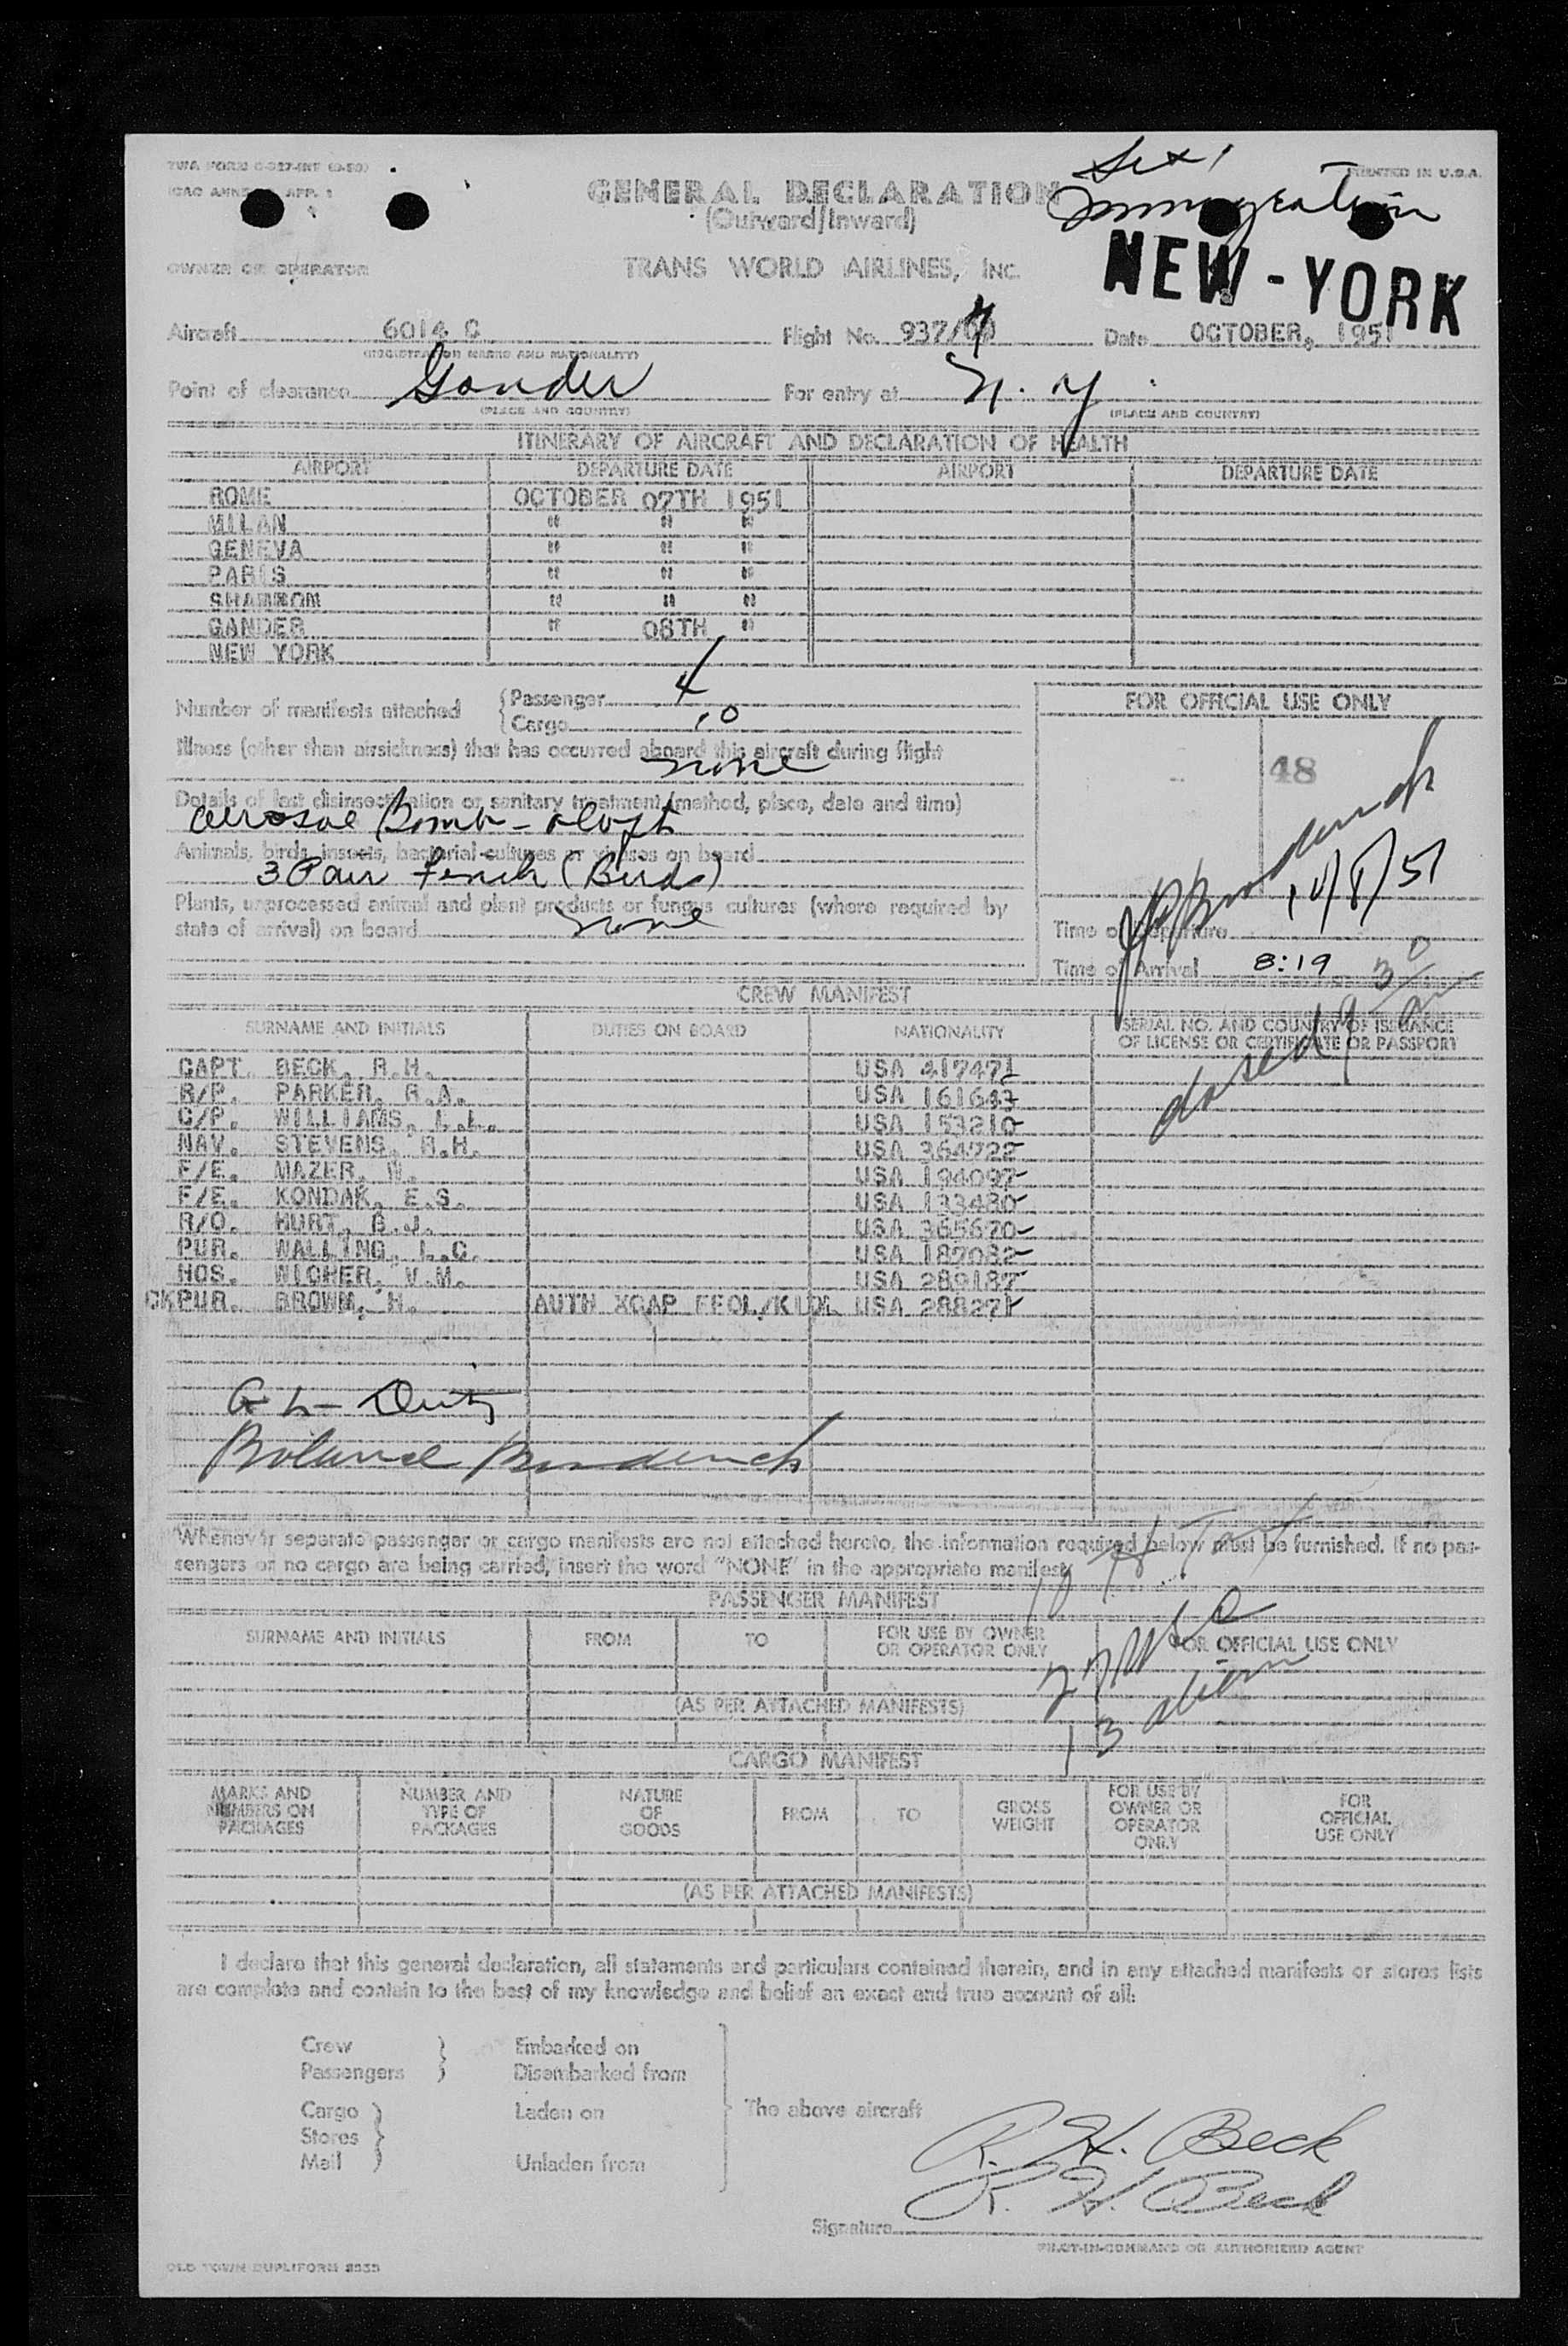 TWA FORM C-327-INT (9-50)
PRINTED IN U.S.A.
ICAO ANNEX APP. 1
GENERAL DECLARATION
Immigration
(Outward/Inward)
NEW-YORK
OWNER OR OPERATOR TRANS WORLD AIRLINES, INC.
Aircraft 6014 C Flight No. 937/ Date OCTOBER, 1951
(REGISTRATION MARKS AND NATIONALITY)
Point of clearance Gander For entry at N.Y.
(PLACE AND COUNTRY) (PLACE AND COUNTRY)
ITINERARY OF AIRCRAFT AND DECLARATION OF HEALTH
AIRPORT DEPARTURE DATE AIRPORT DEPARTURE DATE
ROME OCTOBER 07TH 1951
MILAN " " "
GENEVA " " "
PARIS " " "
SHANNON " " "
GANDER " 08TH "
NEW YORK
Number of manifests attached { Passenger 4
Cargo 10
FOR OFFICIAL USE ONLY
Illness (other than airsickness) that has occurred aboard this aircraft during flight
none
48
Details of last disinsectization or sanitary treatment (method, place, date and time)
Aerosol Bomb - aloft
Animals, birds, insects, bacterial cultures or viruses on board
3 Pair Finch (Birds)
10/8/51
Plants, unprocessed animal and plant products or fungus cultures (where required by
state of arrival) on board none
Time of Departure
Time of Arrival 8:19
closed 9 30
CREW MANIFEST
SURNAME AND INITIALS DUTIES ON BOARD NATIONALITY SERIAL NO. AND COUNTRY OF ISSUANCE
OF LICENSE OR CERTIFICATE OR PASSPORT
CAPT. BECK, R.H. USA 417471
R/P. PARKER, R.A. USA 161643
C/P. WILLIAMS, L.L. USA 153210
NAV. STEVENS, R.H. USA 364722
F/E. MAZER, N. USA 194097
F/E. KONDAK, E.S. USA 133480
R/O. HURT, B.J. USA 365670
PUR. WALLING, L.C. USA 187082
HOS. WICHER, V.M. USA 289187
CKPUR. BROWN, H. AUTH XCAP FEOL/KIDL USA 288271
Whenever separate passenger or cargo manifests are not attached hereto, the information required below must be furnished. If no pas-
sengers or no cargo are being carried, insert the word "NONE" in the appropriate manifest.
PASSENGER MANIFEST
SURNAME AND INITIALS FROM TO FOR USE BY OWNER
OR OPERATOR ONLY FOR OFFICIAL USE ONLY
27 USC
13 alien
(AS PER ATTACHED MANIFESTS)
CARGO MANIFEST
MARKS AND
NUMBERS ON
PACKAGES NUMBER AND
TYPE OF
PACKAGES NATURE
OF
GOODS FROM TO GROSS
WEIGHT FOR USE BY
OWNER OR
OPERATOR
ONLY FOR
OFFICIAL
USE ONLY
(AS PER ATTACHED MANIFESTS)
I declare that this general declaration, all statements and particulars contained therein, and in any attached manifests or stores lists
are complete and contain to the best of my knowledge and belief an exact and true account of all:
Crew } Embarked on
Passengers Disembarked from
Cargo } Laden on The above aircraft
Stores
Mail Unladen from
R. H. Beck
R. H. Beck
Signature
PILOT-IN-COMMAND OR AUTHORIZED AGENT
OLD TOWN DUPLIFORM 8535